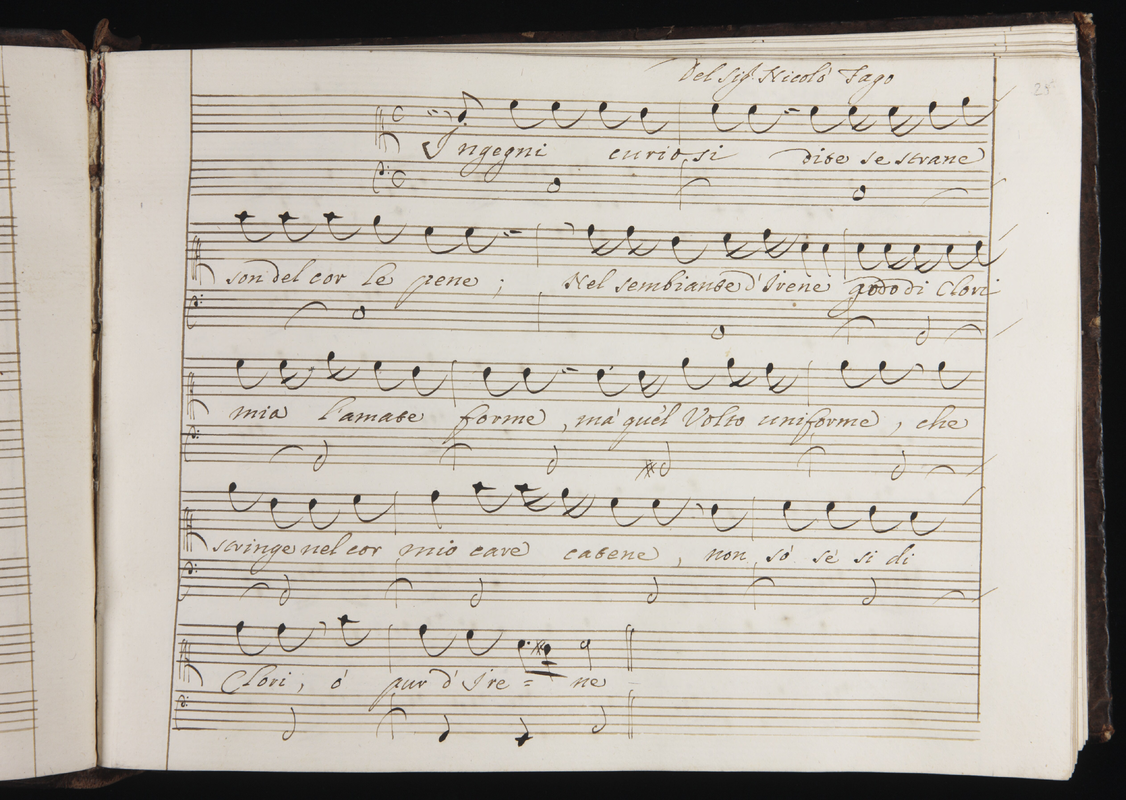 Del Sigr. Nicolò Fago
25
Ingegni curiosi dite se strane
son del cor le pene ; Nel sembiante d'Irene godo di Clori
mia l'amate forme , mà quel Volto uniforme , che
stringe nel cor mio care catene , non sò se si di
Clori , ò pur d'Ire = ne